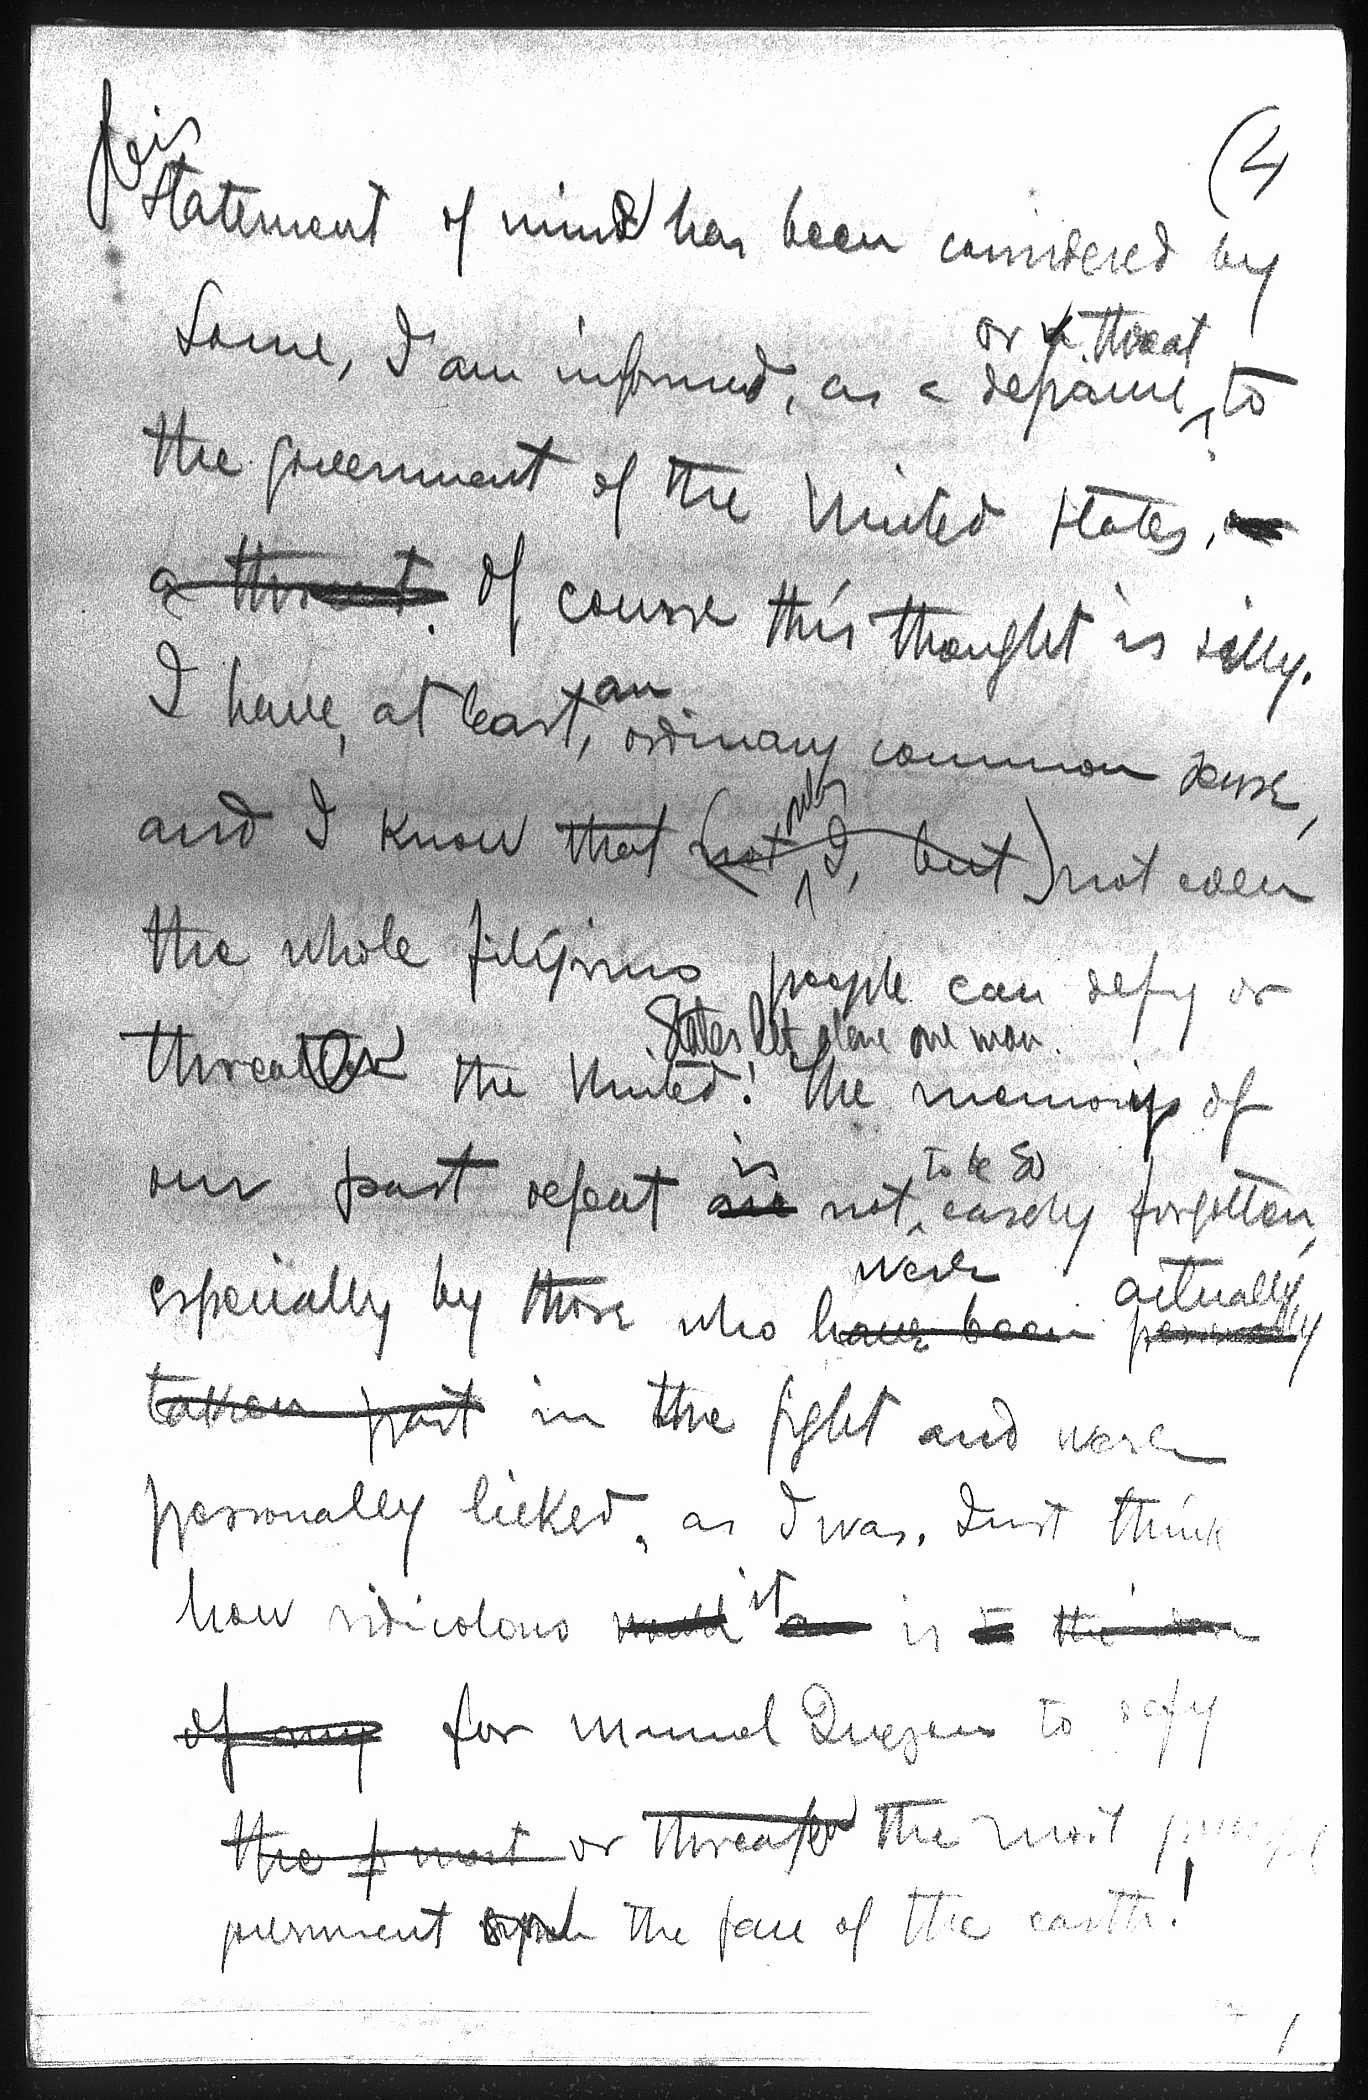 (4
This
statement of mine has been considered by
or a threat
some, I am informed, as a defiance to
the government of the United States,
a threat. Of course this thought is silly.
an
I have, at least, ordinary common sense,
only
and I know that (not I, but) not even
the whole filipino people can defy or
States let alone one man.
threaten the United! The memory of
is to be so
our past defeat are not easely forgotten,
were actually
especially by those who have been personally
taken part in the fight and were
personally licked, as I was. Just think
it
how ridicolous would is the idea
of any for Manuel Quezon to defy
the most or threaten the most powerful
government upon the face of the earth!